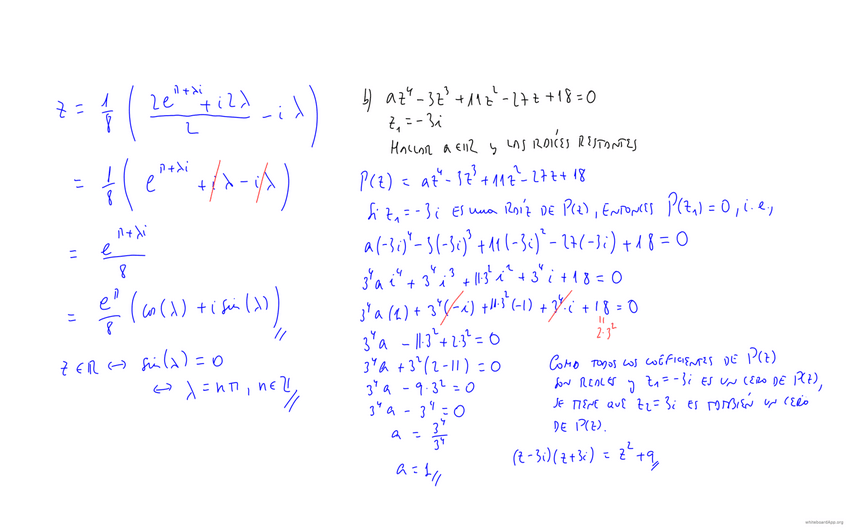 z = 1/8 ( (2e^(π+λi) + i2λ)/2 - iλ )
= 1/8 ( e^(π+λi) + iλ - iλ )
= e^(π+λi)/8
= e^π/8 (cos(λ) + i sin(λ))
z ∈ ℝ ↔ sin(λ) = 0
↔ λ = nπ, n ∈ ℤ
b) az⁴ - 3z³ + 11z² - 27z + 18 = 0
z₁ = -3i
HALLAR a ∈ ℝ y LAS RAÍCES RESTANTES
P(z) = az⁴ - 3z³ + 11z² - 27z + 18
Si z₁ = -3i ES UNA RAÍZ DE P(z), ENTONCES P(z₁) = 0, i.e.,
a(-3i)⁴ - 3(-3i)³ + 11(-3i)² - 27(-3i) + 18 = 0
3⁴ai⁴ + 3⁴i³ + 11·3²i² + 3⁴i + 18 = 0
3⁴a(1) + 3⁴(-i) + 11·3²(-1) + 3⁴·i + 18 = 0
2·3²
3⁴a - 11·3² + 2·3² = 0
3⁴a + 3²(2 - 11) = 0
3⁴a - 9·3² = 0
3⁴a - 3⁴ = 0
a = 3⁴/3⁴
a = 1
COMO TODOS LOS COEFICIENTES DE P(z)
SON REALES y z₁ = -3i ES UN CERO DE P(z),
SE TIENE QUE z₂ = 3i ES TAMBIÉN UN CERO
DE P(z).
(z - 3i)(z + 3i) = z² + 9
whiteboardapp.org